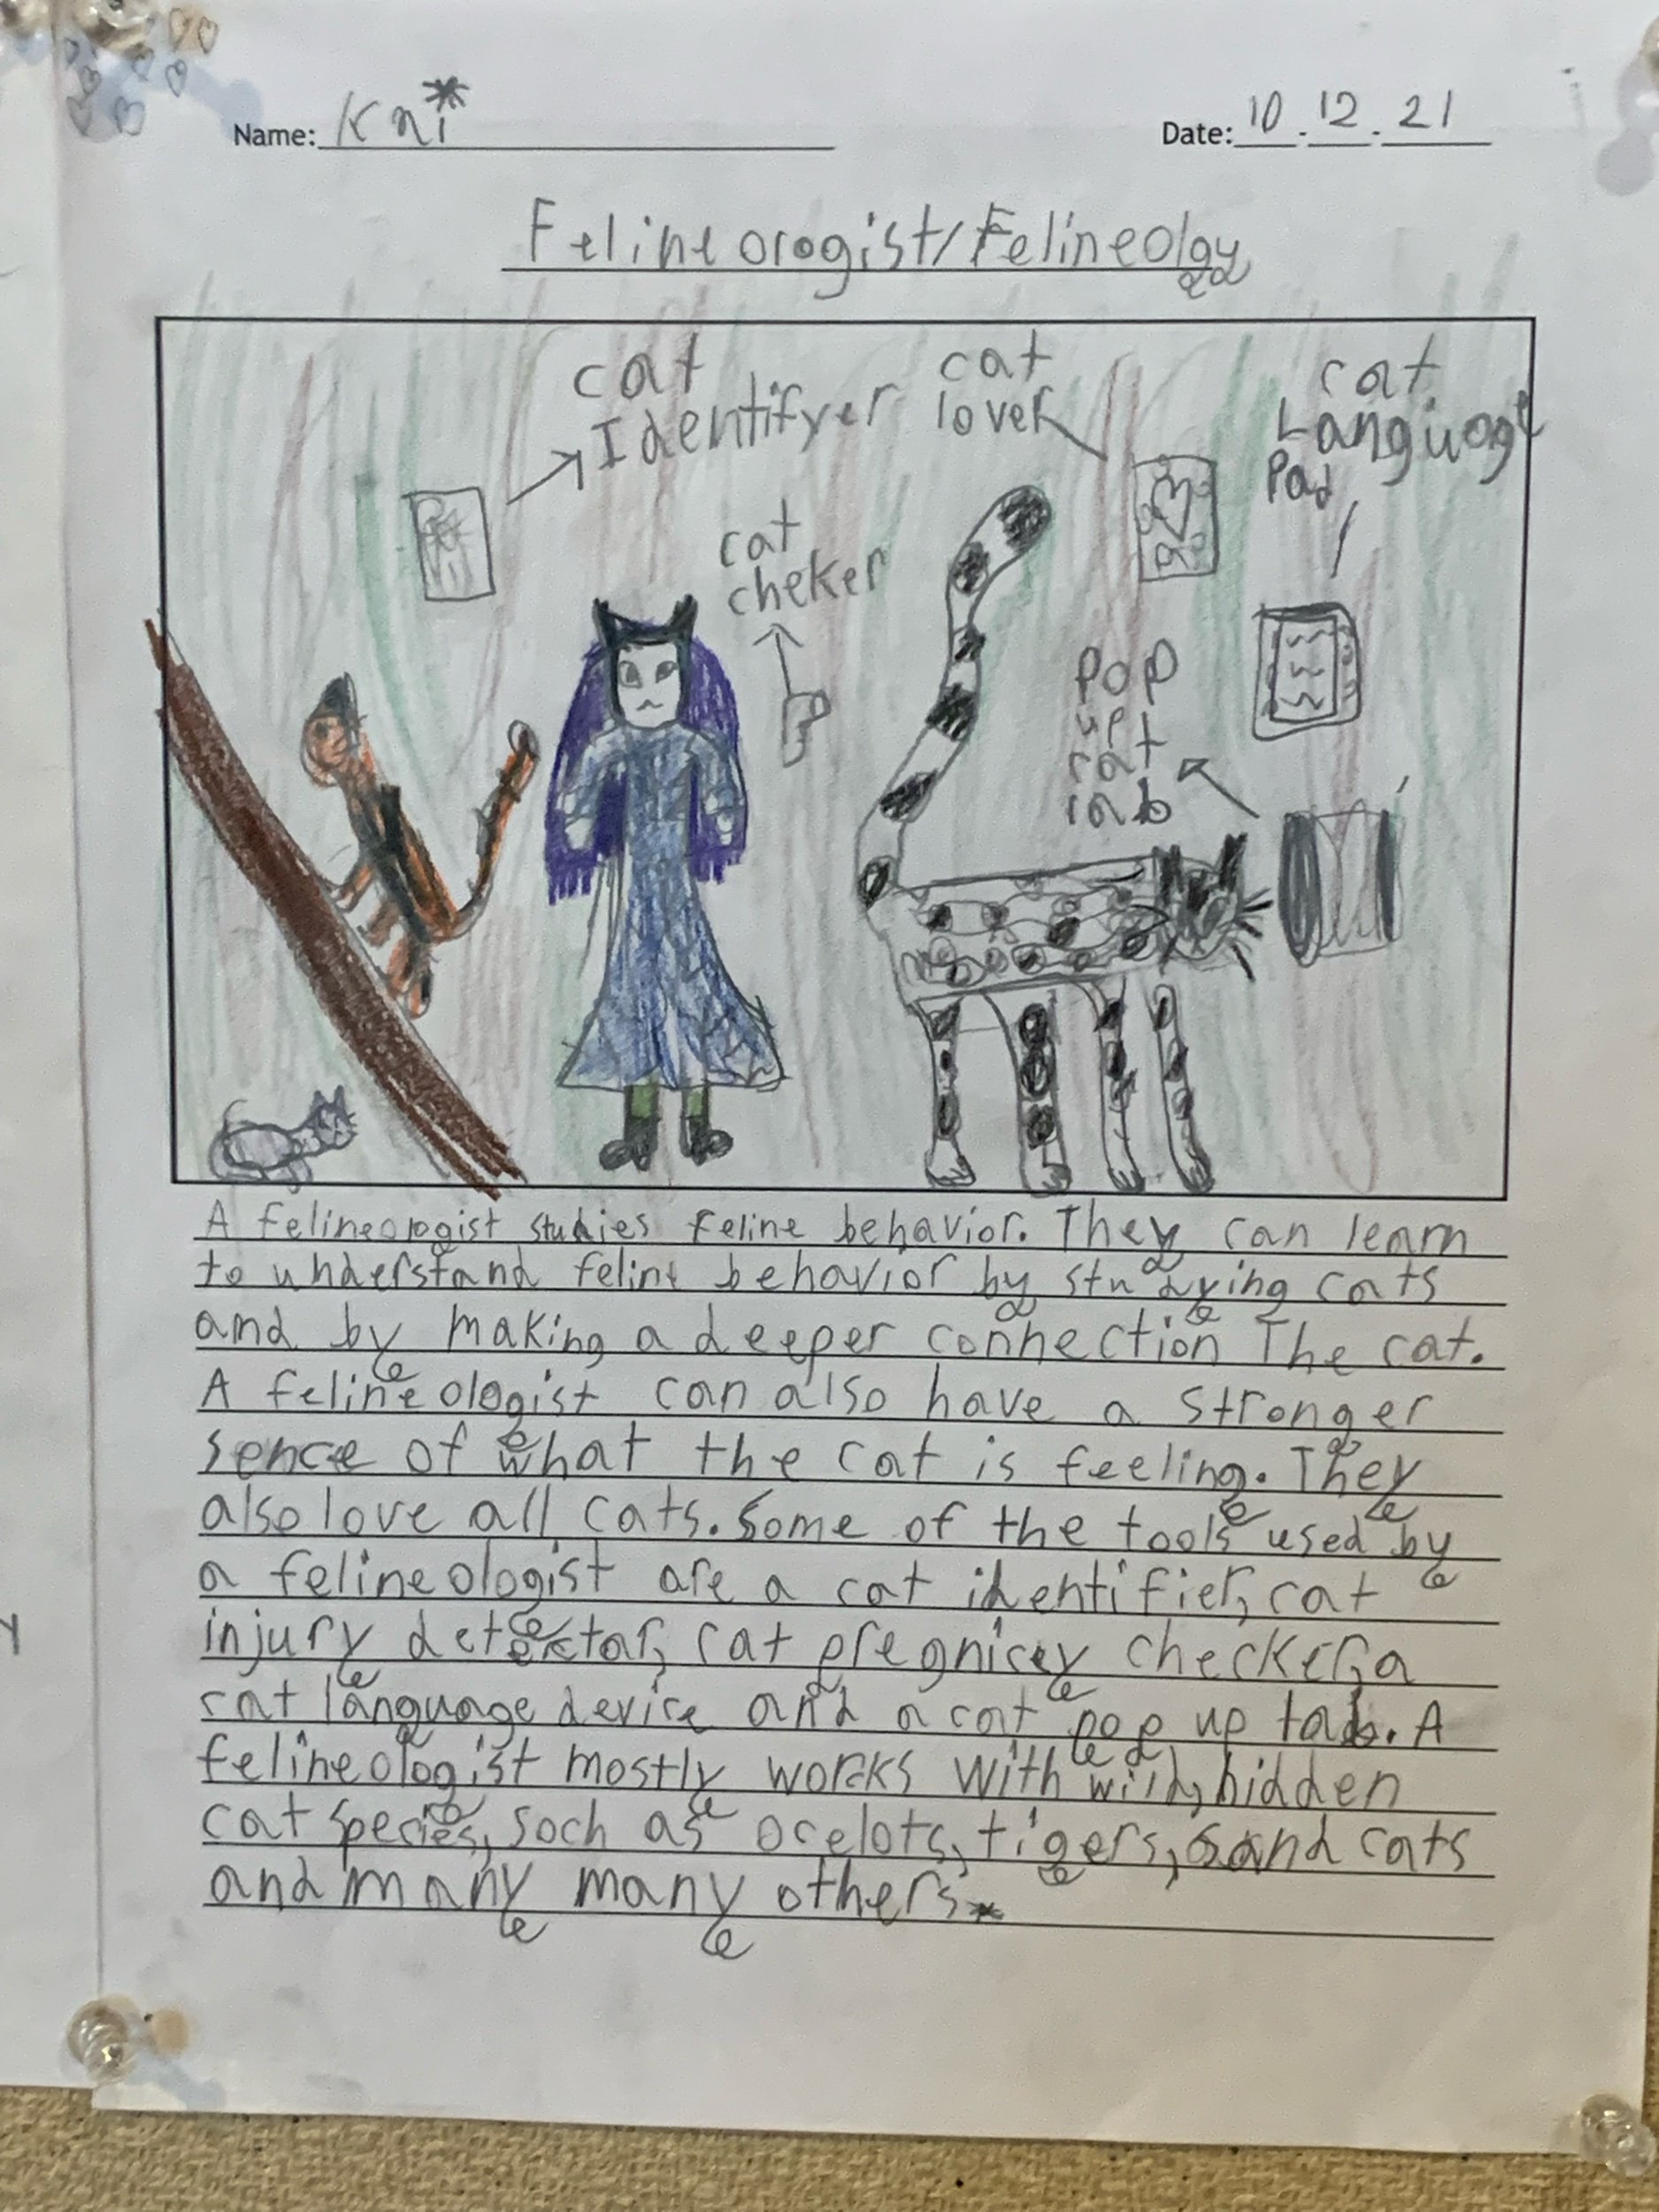 Name: Kai
Date: 10.12.21
Felineorogist/Felineolgy
cat
Identifyer
cat
lover
cat
Languoge
Pad
cat
cheker
Pop
up
cat
lab
A felineologist studies feline behavior. They can learn
to understand feline behavior by studying cats
and by making a deeper connection The cat.
A felineologist can also have a stronger
sence of what the cat is feeling. They
also love all cats. Some of the tools used by
a felineologist are a cat identifier, cat
injury detectar, cat pregnicey checker, a
cat language device and a cat pop up lab. A
felineologist mostly works with wild, hidden
cat species, soch as ocelots, tigers, sand cats
and many many others.